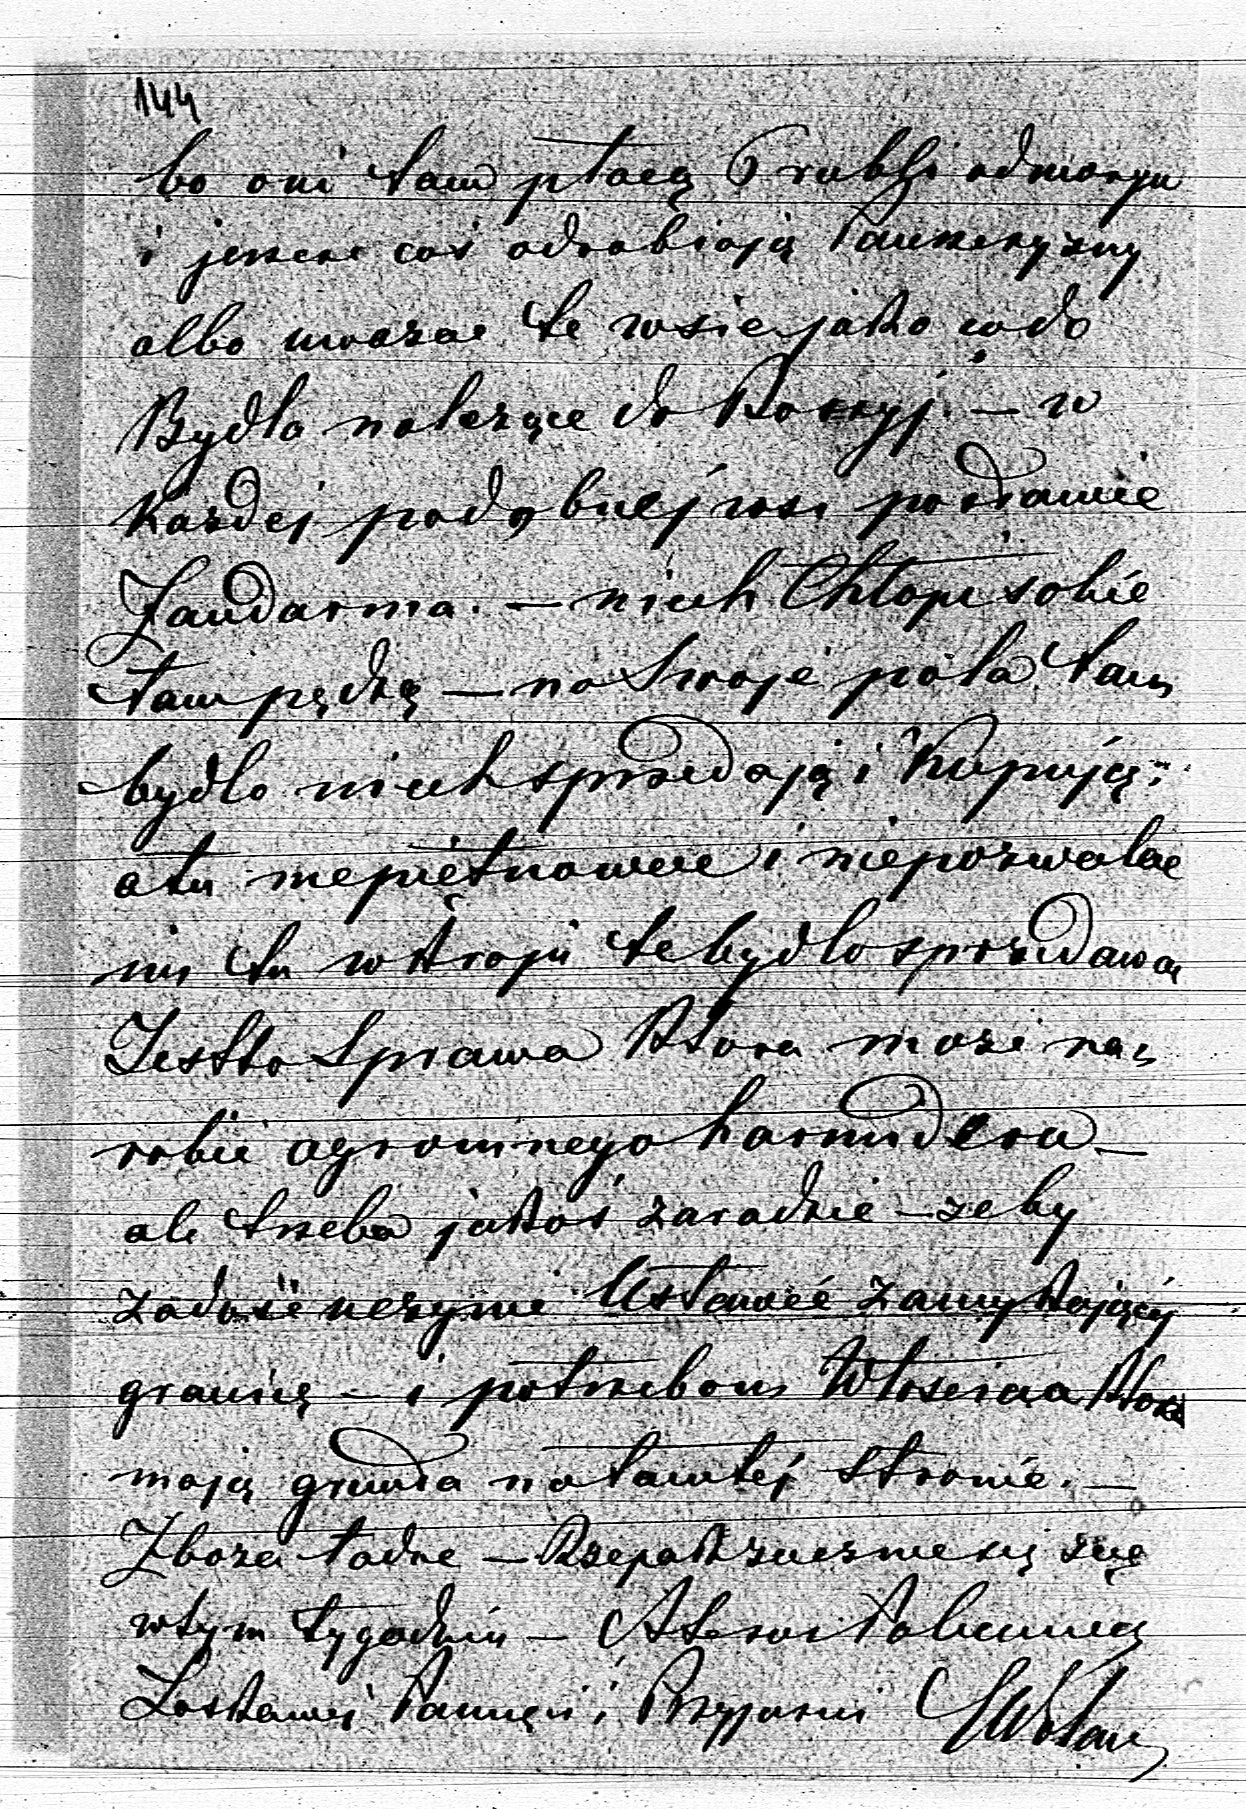 144
bo oni tam płacą 6 rubli od morgu
i jeszcze coś odrabiają Pańszczyzny
albo uwazac te wsie jako co do
Bydła nalezące do Rossyj. – w
Kazdej podobnej wsi postawic
Zandarma. – niech Chłopi sobie
tam pędzą – na Swoje pola tam
bydło niech sprzedają i Kupują;
a tu niepiętnowac i niepozwalac
im tu w Kraju te bydło sprzedawac
Jestto Sprawa Ktora moze na
robic ogromnego harmideru –
ale trzeba jakos zaradzic – zeby
zadosc uczynic Ustawie zamykającej
granicę – i potrzebom Włoscian Ktorzy
mają grunta na tamtej Stronie. –
Zboza ładne – Rzepak zaczniemy ząc
w tym tygodniu –
Łaskawej Pamięci i Przyjazni